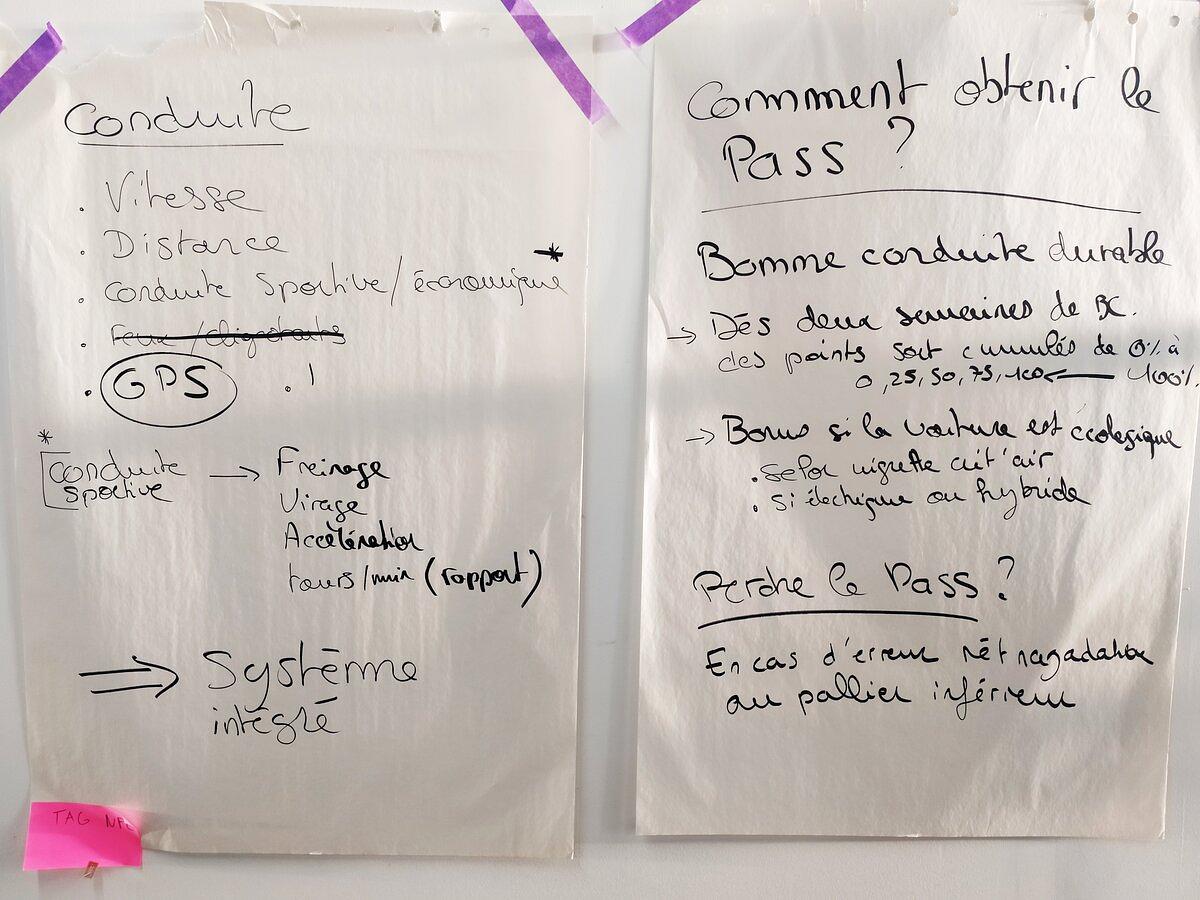 Conduite
. Vitesse
. Distance
. Conduite Sportive/économique *
. Feux /clignotants
. GPS . !
*
conduite sportive → Freinage
Virage
Accélération
tours/min (rapport)
⇒ Système
intégré
TAG NFC
Comment obtenir le
Pass ?
Bonne conduite durable
→ Dés deux semaines de BC.
des points sont cumulés de 0% à
0, 25, 50, 75, 100 ← 100%
→ Bonus si la voiture est écologique
. selon vignette crit'air
. si électrique ou hybride
Perdre le Pass ?
En cas d'erreur rétrogadation
au pallier inférieur